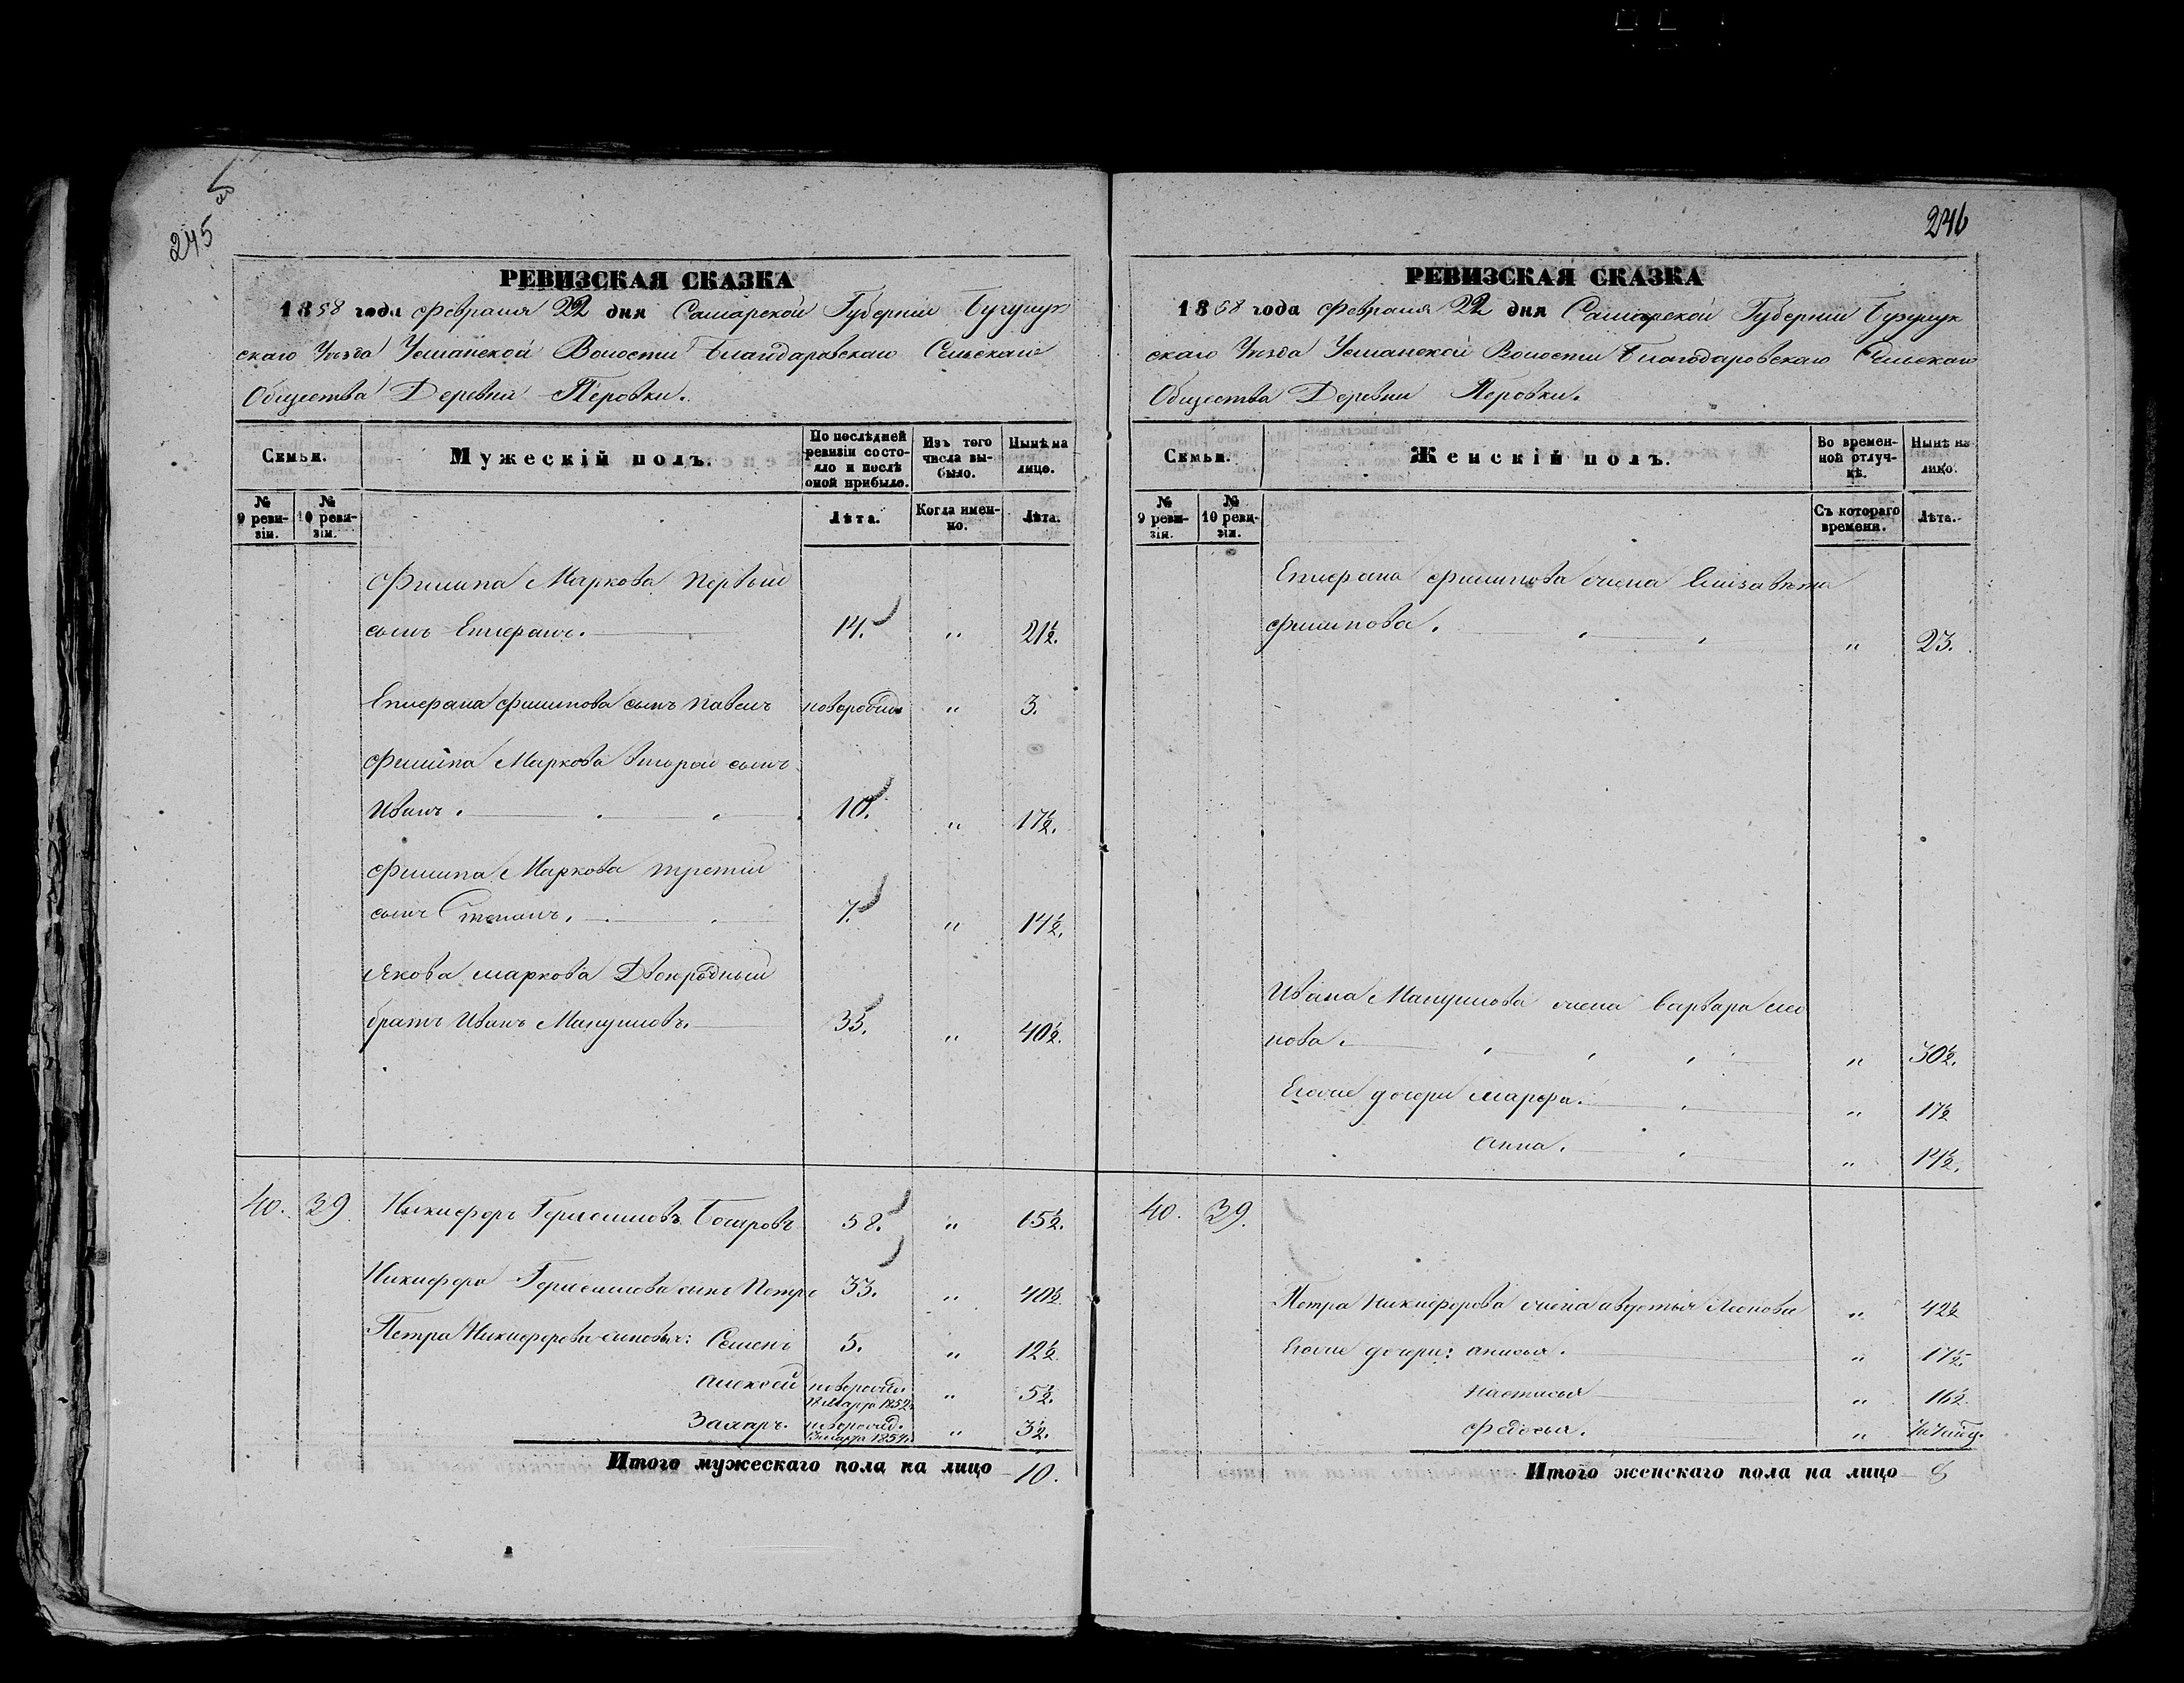 245
РЕВИЗСКАЯ СКАЗКА
1858 года Февраля 22 дня Самарской Губерніи Бузулук
скаго Уѣзда Усманской Волости Благодаровскаго Сельскаго
Общества Деревни Перовки.
Семьи.
Мужескій полъ.
По послѣдней ревизіи состояло и послѣ оной прибыло.
Изъ того числа выбыло.
Нынѣ на лицо.
№ 9 ревизіи.
№ 10 ревизіи.
Лѣта.
Когда именно.
Лѣта.
Филипа Маркова первый
сынъ Епифанъ. 14. " 21½.
Епифана Филипова сынъ Павелъ новорожд. " 3.
Филипа Маркова второй сынъ
Иванъ. 10. " 17½.
Филипа Маркова третій
сынъ Степанъ. 7. " 14½.
Якова Маркова Двоюродный
братъ Иванъ Мануиловъ. 33. " 40½.
40. 39. Никифоръ Герасимовъ Бочаровъ 58. " 15½.
Никифора Герасимова сынъ Петръ 33. " 40½.
Петра Никифорова сыновья: Семенъ 5. " 12½.
Алексей новорожд. 18 Марта 1852. " 5½.
Захаръ. новорожд. марта 1854. " 3½.
Итого мужескаго пола на лицо 10.
246
РЕВИЗСКАЯ СКАЗКА
1858 года Февраля 22 дня Самарской Губерніи Бузулук
скаго Уѣзда Усманской Волости Благодаровскаго Сельскаго
Общества Деревни Перовки.
Семьи.
Женскій полъ.
Во временной отлучкѣ.
Нынѣ на лицо.
№ 9 ревизіи.
№ 10 ревизіи.
Съ котораго времени.
Лѣта.
Епифана Филипова жена Елизавета
Филипова. " 23.
Ивана Мануилова жена Варвара
нова. " 30½.
Егоже дочери Марфа. " 17½
Анна. " 14½.
40. 39.
Петра Никифорова жена Авдотья Леонова " 42½
Егоже дочери: Анисья. " 17½.
Настасья " 16½.
Федосья. "
Итого женскаго пола на лицо 8